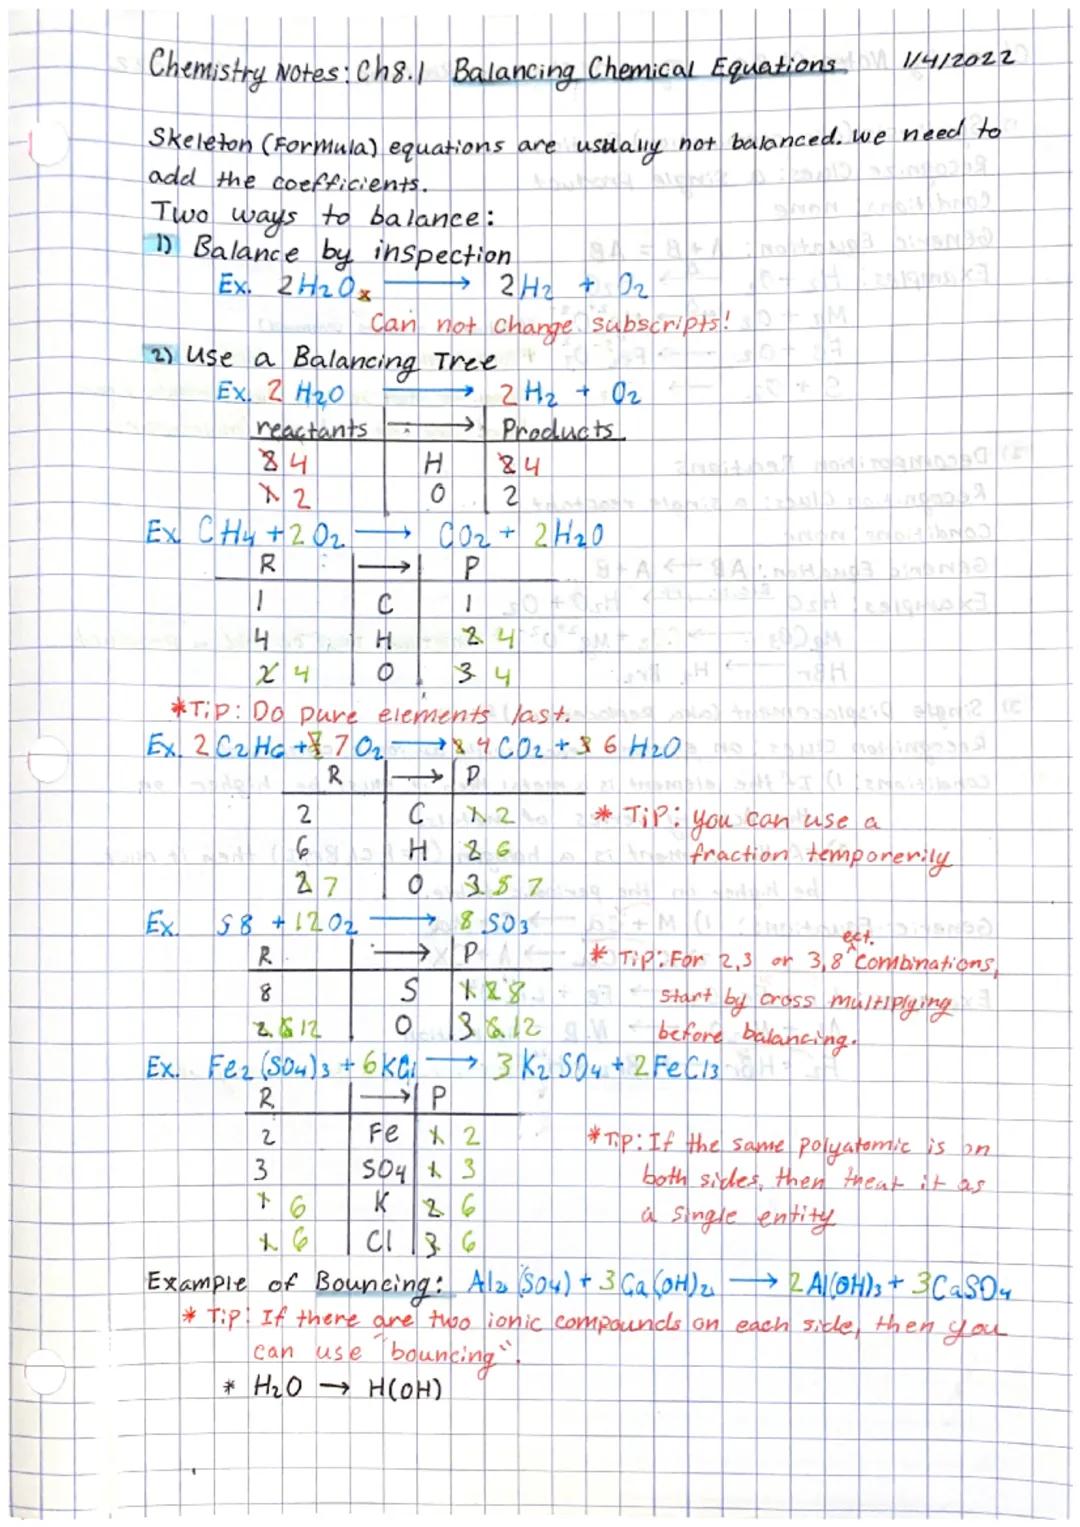 Chemistry Notes: Ch8.1 Balancing Chemical Equations 1/4/2022
Skeleton (Formula) equations are usually not balanced. we need to
add the coefficients.
Two ways to balance:
1) Balance by inspection
Ex. 2H₂Oₓ → 2H₂ + O₂
Can not change subscripts!
2) Use a Balancing Tree
Ex. 2 H₂O → 2H₂ + O₂
reactants → Products
2 4 H 2 4
1 2 O 2
Ex. CH₄ + 2O₂ → CO₂ + 2H₂O
R → P
1 C 1
4 H 2 4
2 4 O 3 4
*Tip: Do pure elements last.
Ex. 2 C₂H₆ + 7 O₂ → 2 4 CO₂ + 3 6 H₂O
R → P
2 C 1 2
6 H 2 6
2 7 O 3 5 7
* Tip: you can use a
fraction temporerily
Ex. S8 + 12O₂ → 8 SO₃
R → P
8 S 1 2 8
2 6 12 O 3 6 12
* Tip: For 2,3 or 3,8 ect. combinations,
start by cross multiplying
before balancing.
Ex. Fe₂(SO₄)₃ + 6KCl → 3 K₂SO₄ + 2FeCl₃
R → P
2 Fe 1 2
3 SO₄ 1 3
1 6 K 2 6
1 6 Cl 3 6
*Tip: If the same polyatomic is on
both sides, then treat it as
a single entity
Example of Bouncing: Al₂(SO₄) + 3Ca(OH)₂ → 2Al(OH)₃ + 3CaSO₄
* Tip: If there are two ionic compounds on each side, then you
can use "bouncing".
* H₂O → H(OH)